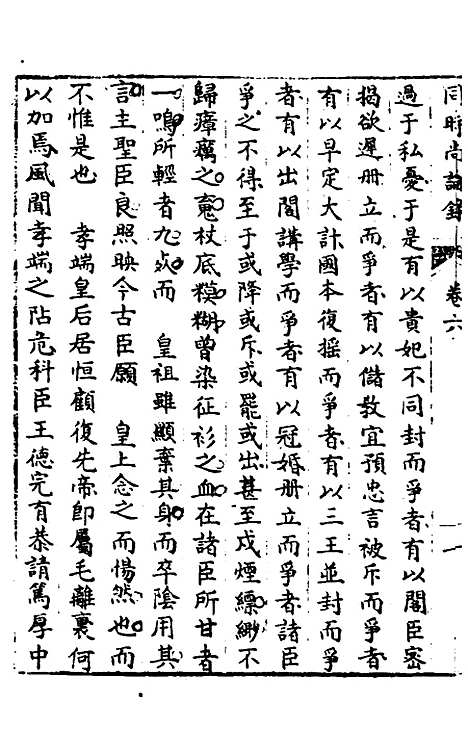 同時尚論錄 卷六 一
過于私憂于是有以貴妃不同封而爭者有以閣臣密
揭欲遲册立而爭者有以儲教宜預忠言被斥而爭者
有以早定大計國本復搖而爭者有以三王並封而爭
者有以出閣講學而爭者有以冠婚册立而爭者諸臣
爭之不得至于或降或斥或罷或出甚至戍煙縹緲不
歸瘴癘之䰟杖底糢糊曾染征衫之血在諸臣所甘者
一鳴所輕者九死而 皇祖雖顯棄其身而卒陰用其
言主聖臣良照映今古臣願 皇上念之而惕然也而
不惟是也 孝端皇后居恒顧復先帝卽屬毛離裏何
以加焉風聞孝端之阽危科臣王德完有恭請篤厚中